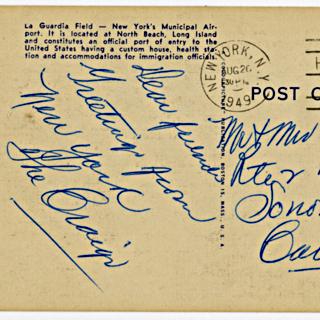 La Guardia Field — New York's Municipal Air-
port. It is located at North Beach, Long Island
and constitutes an official port of entry to the
United States having a custom house, health sta-
tion and accommodations for immigration officials.
NEW YORK, N.Y.
AUG 26
1949
POST C
Dear friends
Greetings from
New York
The Craigs
Mr & Mrs
Sono
Cal